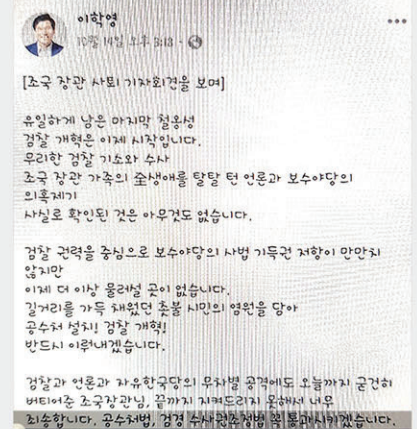 이학영
10월 14일 오후 3:13
[조국 장관 사퇴 기자회견을 보며]
유일하게 남은 마지막 철옹성
검찰 개혁은 이제 시작입니다.
무리한 검찰 기소와 수사
조국 장관 가족의 全생애를 탈탈 턴 언론과 보수야당의
의혹제기
사실로 확인된 것은 아무것도 없습니다.
검찰 권력을 중심으로 보수야당의 사법 기득권 저항이 만만치
않지만
이제 더 이상 물러설 곳이 없습니다.
길거리를 가득 채웠던 촛불 시민의 염원을 담아
공수처 설치! 검찰 개혁!
반드시 이뤄내겠습니다.
검찰과 언론과 자유한국당의 무차별 공격에도 오늘까지 굳건히
버티어준 조국장관님, 끝까지 지켜드리지 못해서 너무
죄송합니다. 공수처법, 검경 수사권조정법 꼭 통과시키겠습니다.